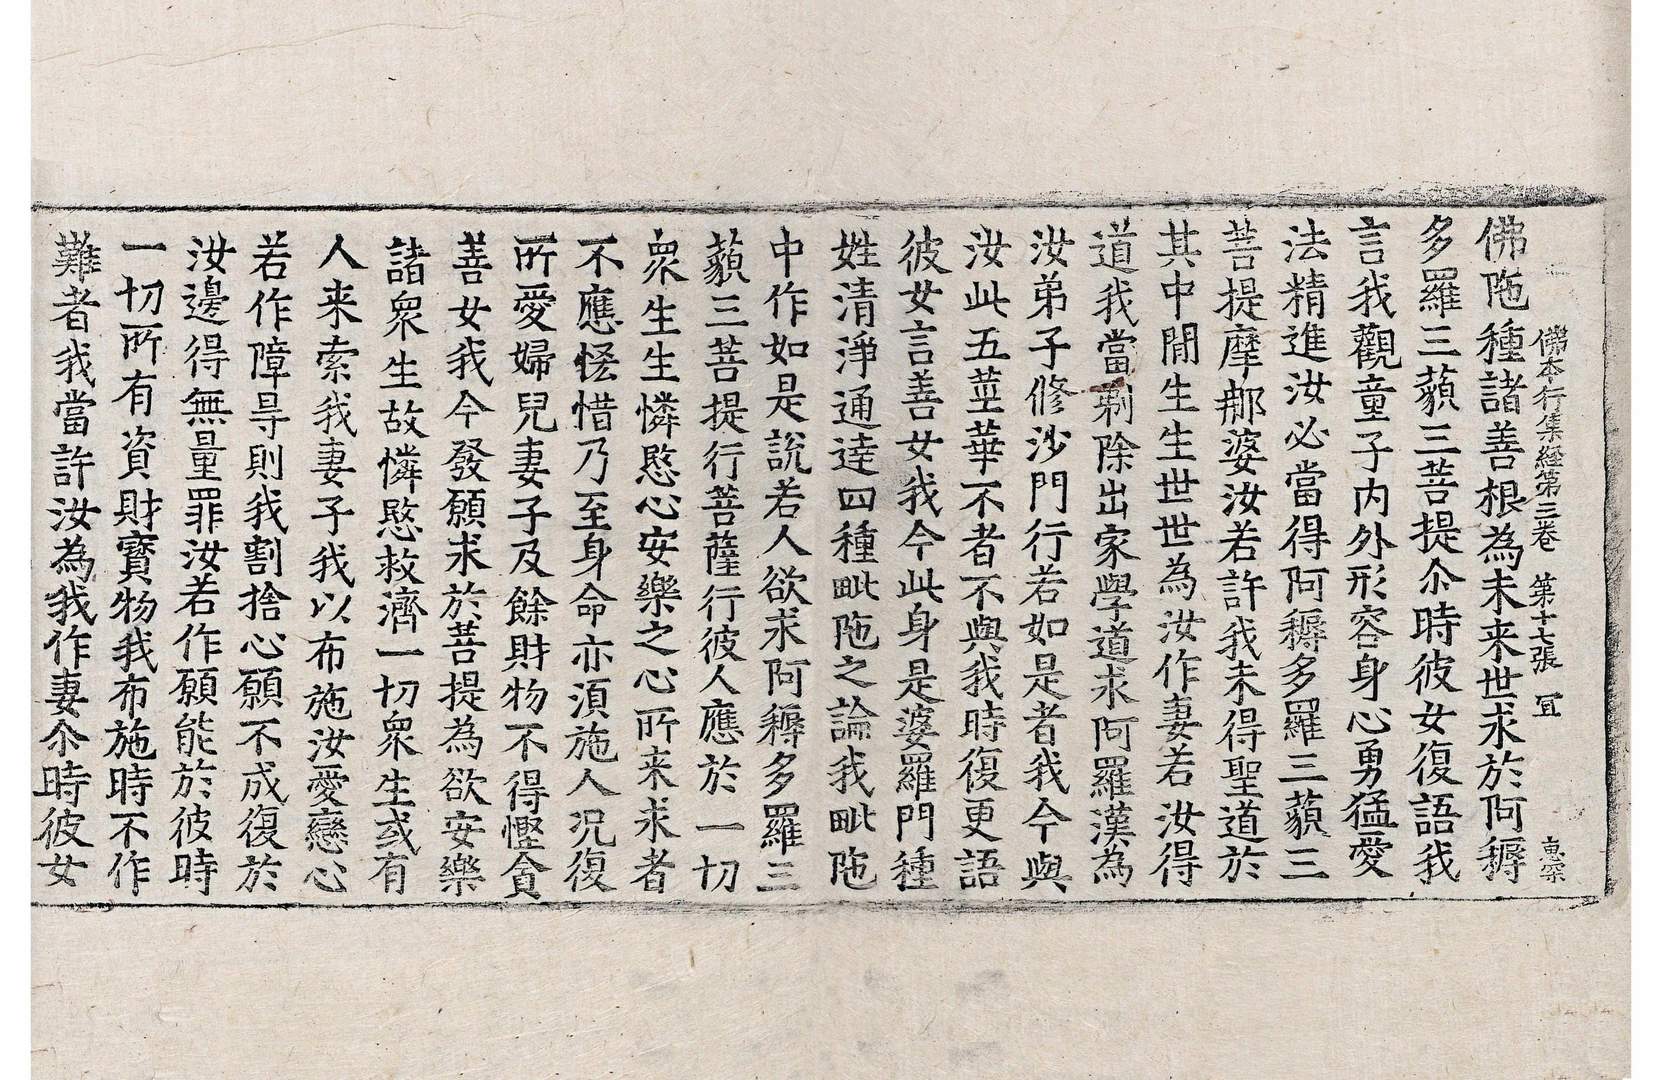 佛本行集経第三卷 第十七張 冝
佛陁種諸善根為未来世求於阿耨
多羅三藐三菩提尒時彼女復語我
言我觀童子内外形容身心勇猛愛
法精進汝必當得阿耨多羅三藐三
菩提摩那婆汝若許我未得聖道於
其中間生生世世為汝作妻若汝得
道我當剃除出家學道求阿羅漢為
汝弟子修沙門行若如是者我今與
汝此五莖華不者不與我時復更語
彼女言善女我今此身是婆羅門種
姓清淨通達四種毗陁之論我毗陁
中作如是說若人欲求阿耨多羅三
藐三菩提行菩薩行彼人應於一切
衆生生憐愍心安樂之心所来求者
不應悋惜乃至身命亦須施人况復
所愛婦兒妻子及餘財物不得慳貪
善女我今發願求於菩提為欲安樂
諸衆生故憐愍救濟一切衆生或有
人来索我妻子我以布施汝愛戀心
若作障㝵則我割捨心願不成復於
汝邊得無量罪汝若作願能於彼時
一切所有資財寶物我布施時不作
難者我當許汝為我作妻尒時彼女